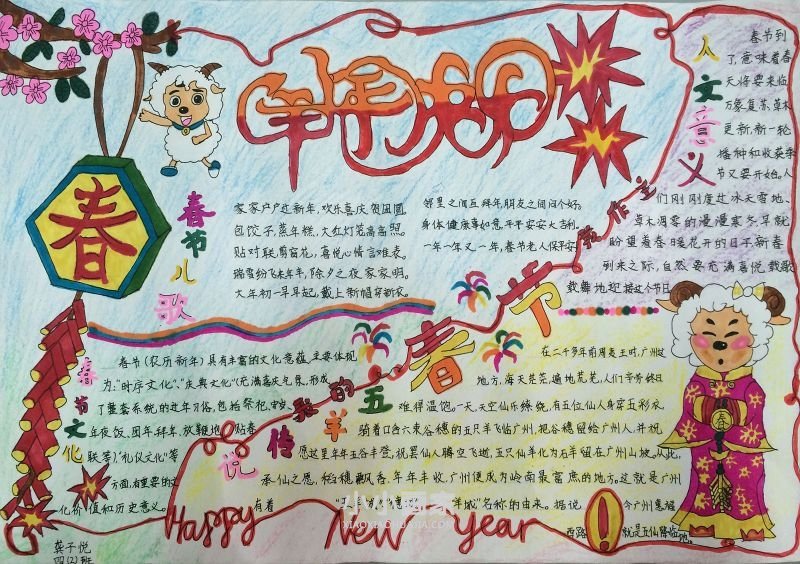 羊年春节
春
春节儿歌
家家户户迎新年,欢乐喜庆贺团圆
包饺子,蒸年糕,大红灯笼高高照。
贴对联,剪窗花,喜悦心情言难表。
瑞雪纷飞来年丰,除夕之夜家家明。
大年初一早早起,戴上新帽穿新衣。
邻里之间互拜年,朋友之间问个好。
身体健康事如意,平平安安大吉利。
一年一年又一年,春节老人保平安
人文意义
春节到
了,意味着春
天将要来临
万象复苏,草木
更新,新一轮
播种和收获季
节又要开始。人
们刚刚度过冰天雪地、
草木凋零的漫漫寒冬,早就
盼望着春暖花开的日子,新春
到来之际,自然要充满喜悦载歌
载舞地迎接这个节日
我的春节我作主
春节文化
春节(农历新年)具有丰富的文化意蕴,主要体现
为:“时序文化”、“庆典文化”(充满喜庆气氛,形成
了重要系统的过年习俗,包括祭祀、守岁、
年夜饭、团年、拜年、放鞭炮、贴春
联等)、“礼仪文化”等
方面,有重要的文
化价值和历史意义。
五羊传说
在二千多年前周夷王时,广州这
地方,海天茫茫,遍地荒芜,人们辛劳终日
难得温饱。一天,天空仙乐缭绕,有五位仙人身穿五彩衣,
骑着口含六束谷穗的五只羊飞临广州,把谷穗留给广州人,并祝
愿这里年年五谷丰登,祝罢仙人腾空飞逝,五只仙羊化为石羊留在广州山坡。从此,
承仙之愿,稻穗飘香,年年丰收,广州便成为岭南最富庶的地方。这就是广州
有着 羊城”名称的由来。据说, 今广州惠福
西路 就是五仙降临地。
Happy New Year
龚子悦
四(2)班
小小画家
XIAOXIAOHUAJIA.CO